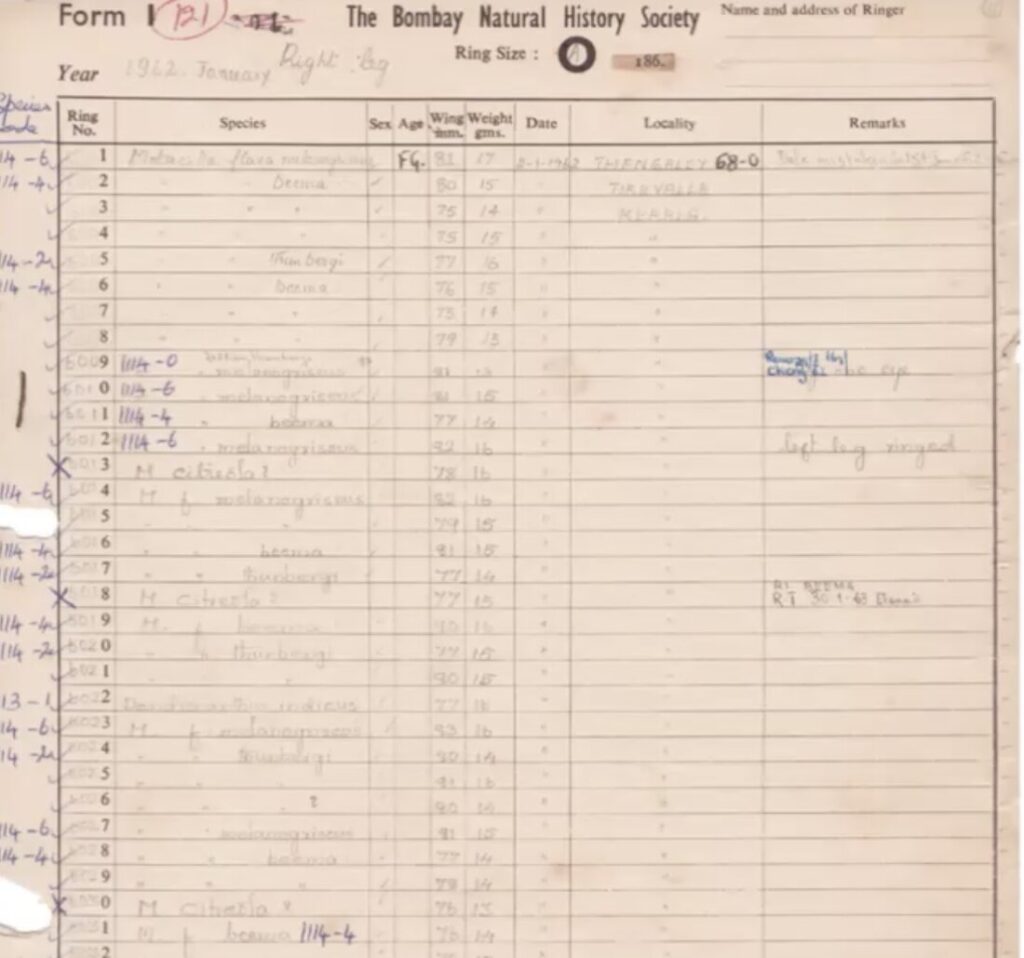 Form 1 121 The Bombay Natural History Society Name and address of Ringer
Ring Size : A 186.
Year 1962 January Right leg
Species
Ring No. Species Sex Age Wing mm. Weight gms. Date Locality Remarks
14 -6 1 Motacilla flava FG. 82 17 2-1-1962 THENGALEY 68-0
114 -4 2 " " beema 80 15 TIRUVALLA
3 " " " 75 14 KERALA.
4 " " " 75 15 "
114 -2 5 " " thunbergi 77 16 "
114 -4 6 " " beema 76 15 "
7 " " " 73 14 "
8 " " " 79 13 "
6009 1114 -0 melanogriseus 81 eye
6010 1114 -6 " melanogriseus 81 15
6011 1114 -4 beema 77 14
6012 1114 -6 " melanogriseus 82 16 left leg ringed
6013 M citreola ? 78 16
114 -6 6014 M f melanogriseus 82 16
6015 " " " 79 15
114 -4 6016 " " beema 81 15
114 -2 6017 " " thunbergi 77 14
6018 M citreola ? 77 15 BEEMA
RT 30-1-63
114 -4 6019 M. f beema 80 16
114 -2 6020 " " thunbergi 77 15
6021 " " 80 15
13 -1 6022 Dendronanthus indicus 77 16
14 -6 6023 M. f melanogriseus 83 16
14 -2 6024 " " thunbergi 80 14
6025 " " " 81 16
6026 " " ? 80 14
114 -6 6027 " melanogriseus 81 15
114 -4 6028 " " beema 77 14
6029 " " " 79 14
6030 M citreola ? 76 13
6031 M. f beema 1114-4 76 14
2